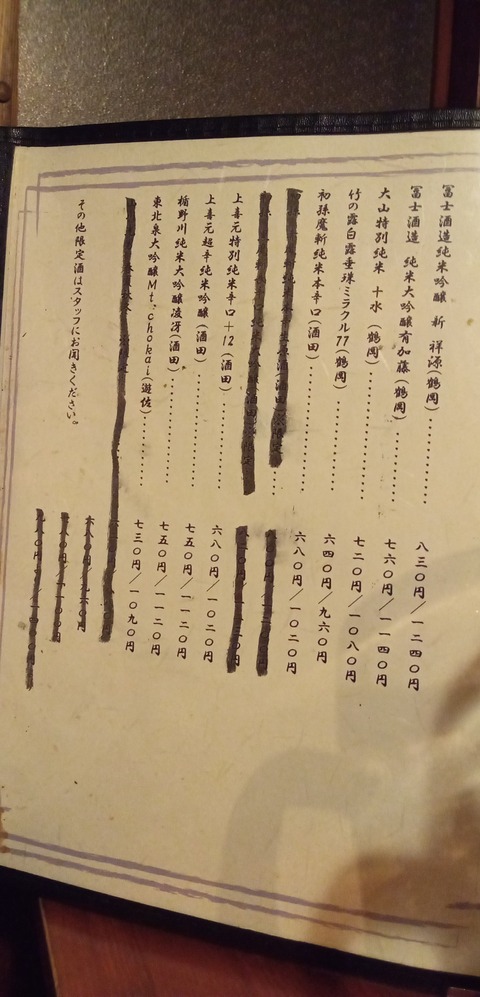 冨士酒造純米吟醸 新 祥源(鶴岡)………………八三〇円／一二四〇円
冨士酒造 純米大吟醸有加藤(鶴岡)………………七六〇円／一一四〇円
大山特別純米 十水 (鶴岡)………………七二〇円／一〇八〇円
竹の露白露垂珠ミラクル77(鶴岡)………………六四〇円／九六〇円
初孫魔斬純米本辛口(酒田)………………六八〇円／一〇二〇円
上喜元特別純米辛口+12(酒田)………………六八〇円／一〇二〇円
上喜元超辛純米吟醸(酒田)………………七五〇円／一一二〇円
楯野川純米大吟醸凌冴(酒田)………………七五〇円／一一二〇円
東北泉大吟醸Mt.chokai(遊佐)………………七三〇円／一〇九〇円
その他限定酒はスタッフにお聞きください。